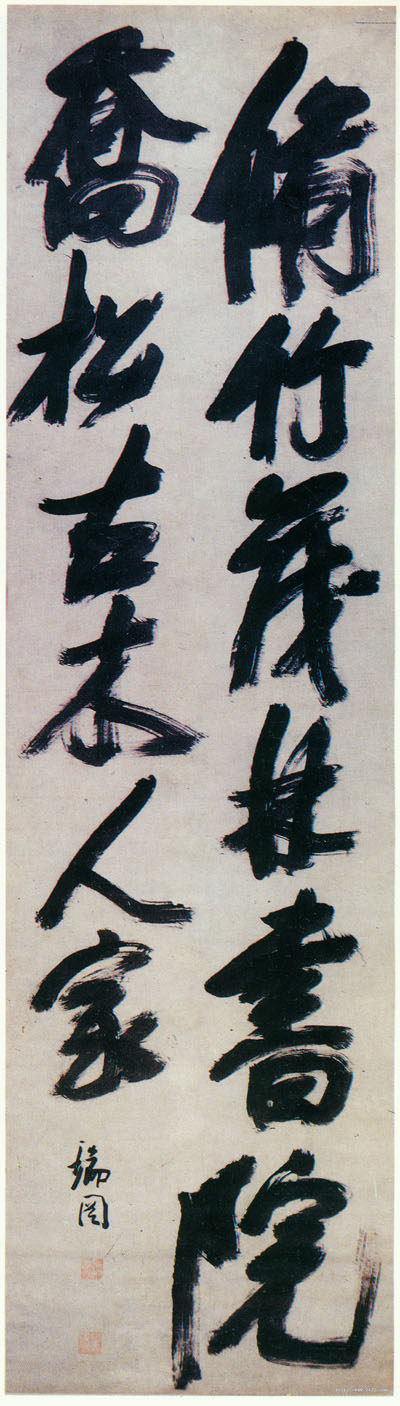 脩竹茂林書院
喬松古木人家
瑞图